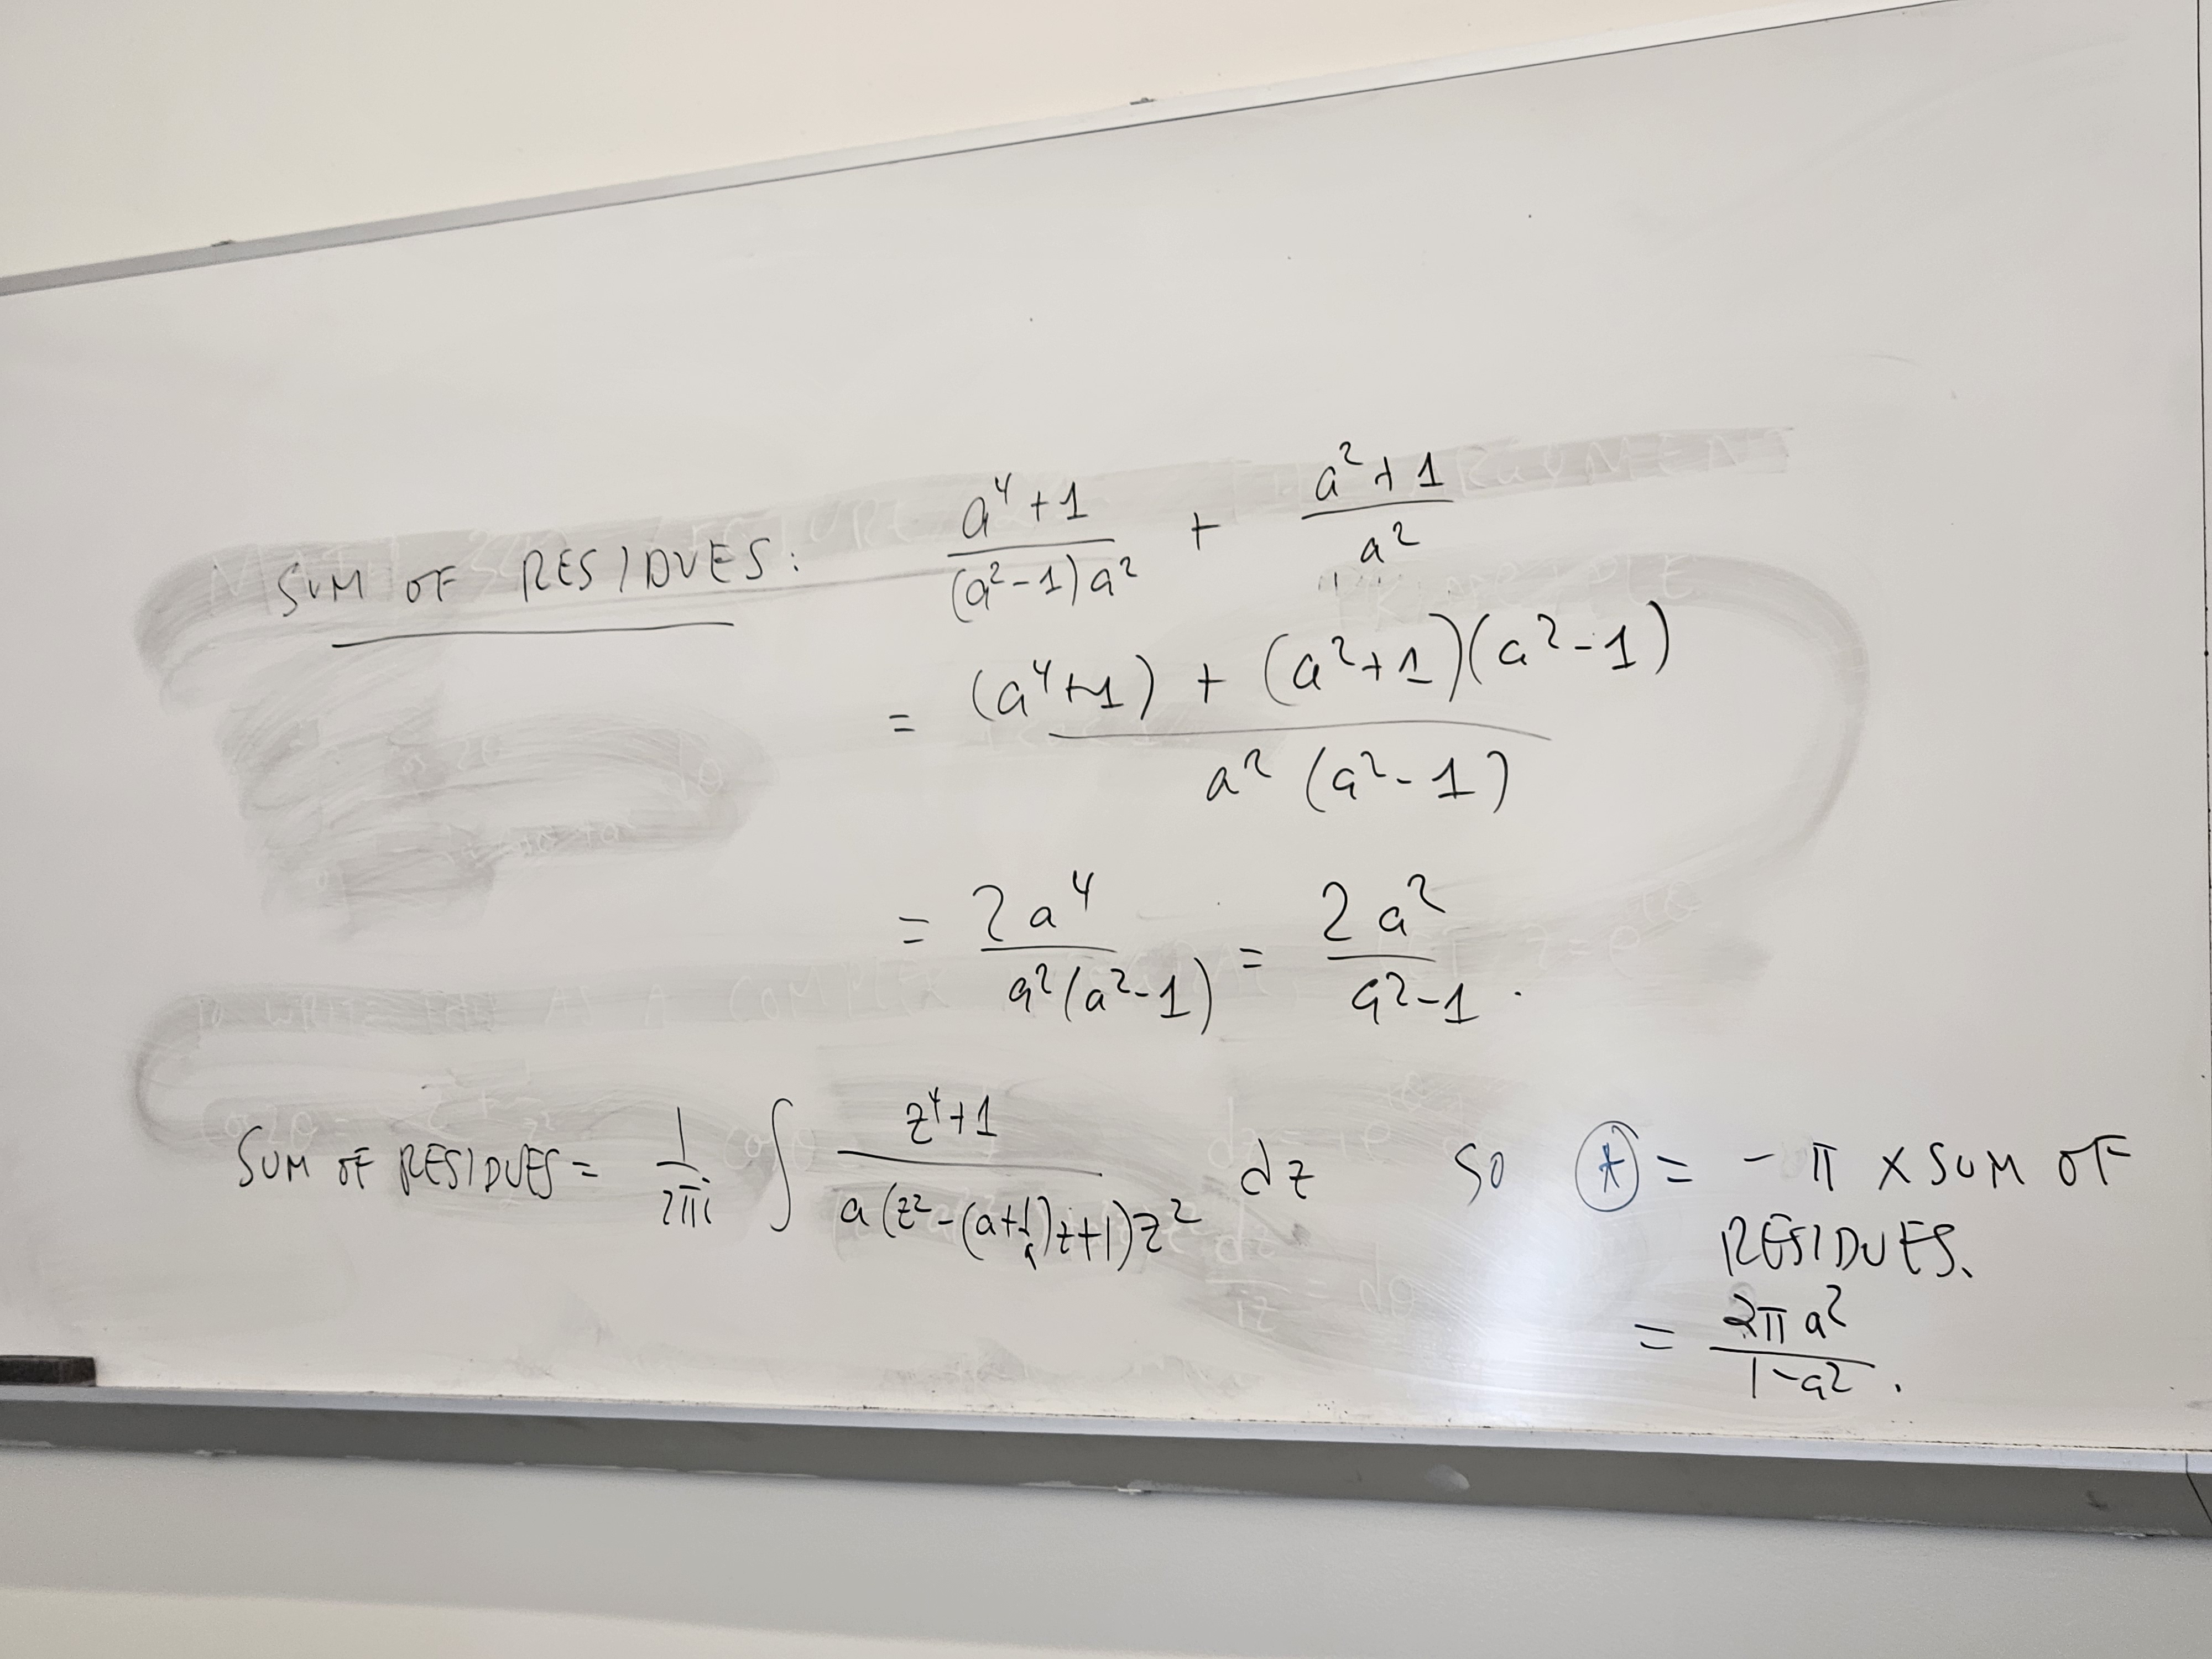 SUM OF RESIDUES: (a⁴+1)/((a²-1)a²) + (a²+1)/a²
= ((a⁴+1) + (a²+1)(a²-1))/(a²(a²-1))
= 2a⁴/(a²(a²-1)) = 2a²/(a²-1).
SUM OF RESIDUES = 1/(2πi) ∫ (z⁴+1)/(a(z²-(a+1/a)z+1)z²) dz SO (*) = -π × SUM OF
RESIDUES.
= 2πa²/(1-a²).